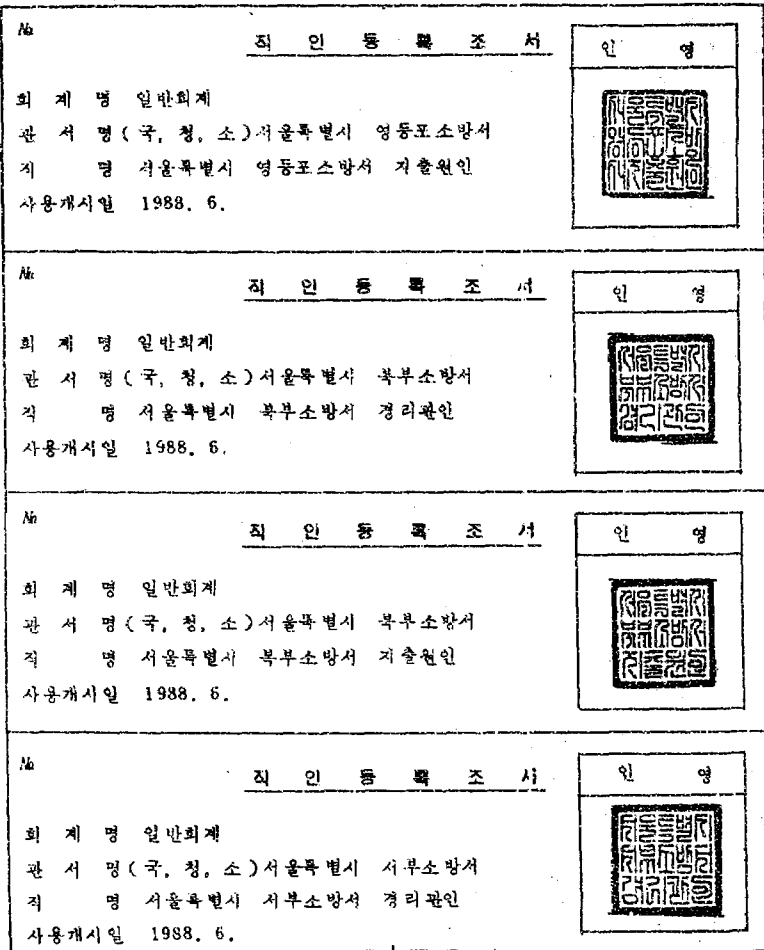 No.
직 인 등 록 조 서
인 영
회 계 명 일반회계
관 서 명 ( 국, 청, 소 ) 서울특별시 영등포소방서
직 명 서울특별시 영등포소방서 지출원인
사용개시일 1988. 6.
No.
직 인 등 록 조 서
인 영
회 계 명 일반회계
관 서 명 ( 국, 청, 소 ) 서울특별시 북부소방서
직 명 서울특별시 북부소방서 경리관인
사용개시일 1988. 6.
No.
직 인 등 록 조 서
인 영
회 계 명 일반회계
관 서 명 ( 국, 청, 소 ) 서울특별시 북부소방서
직 명 서울특별시 북부소방서 지출원인
사용개시일 1988. 6.
No.
직 인 등 록 조 서
인 영
회 계 명 일반회계
관 서 명 ( 국, 청, 소 ) 서울특별시 서부소방서
직 명 서울특별시 서부소방서 경리관인
사용개시일 1988. 6.